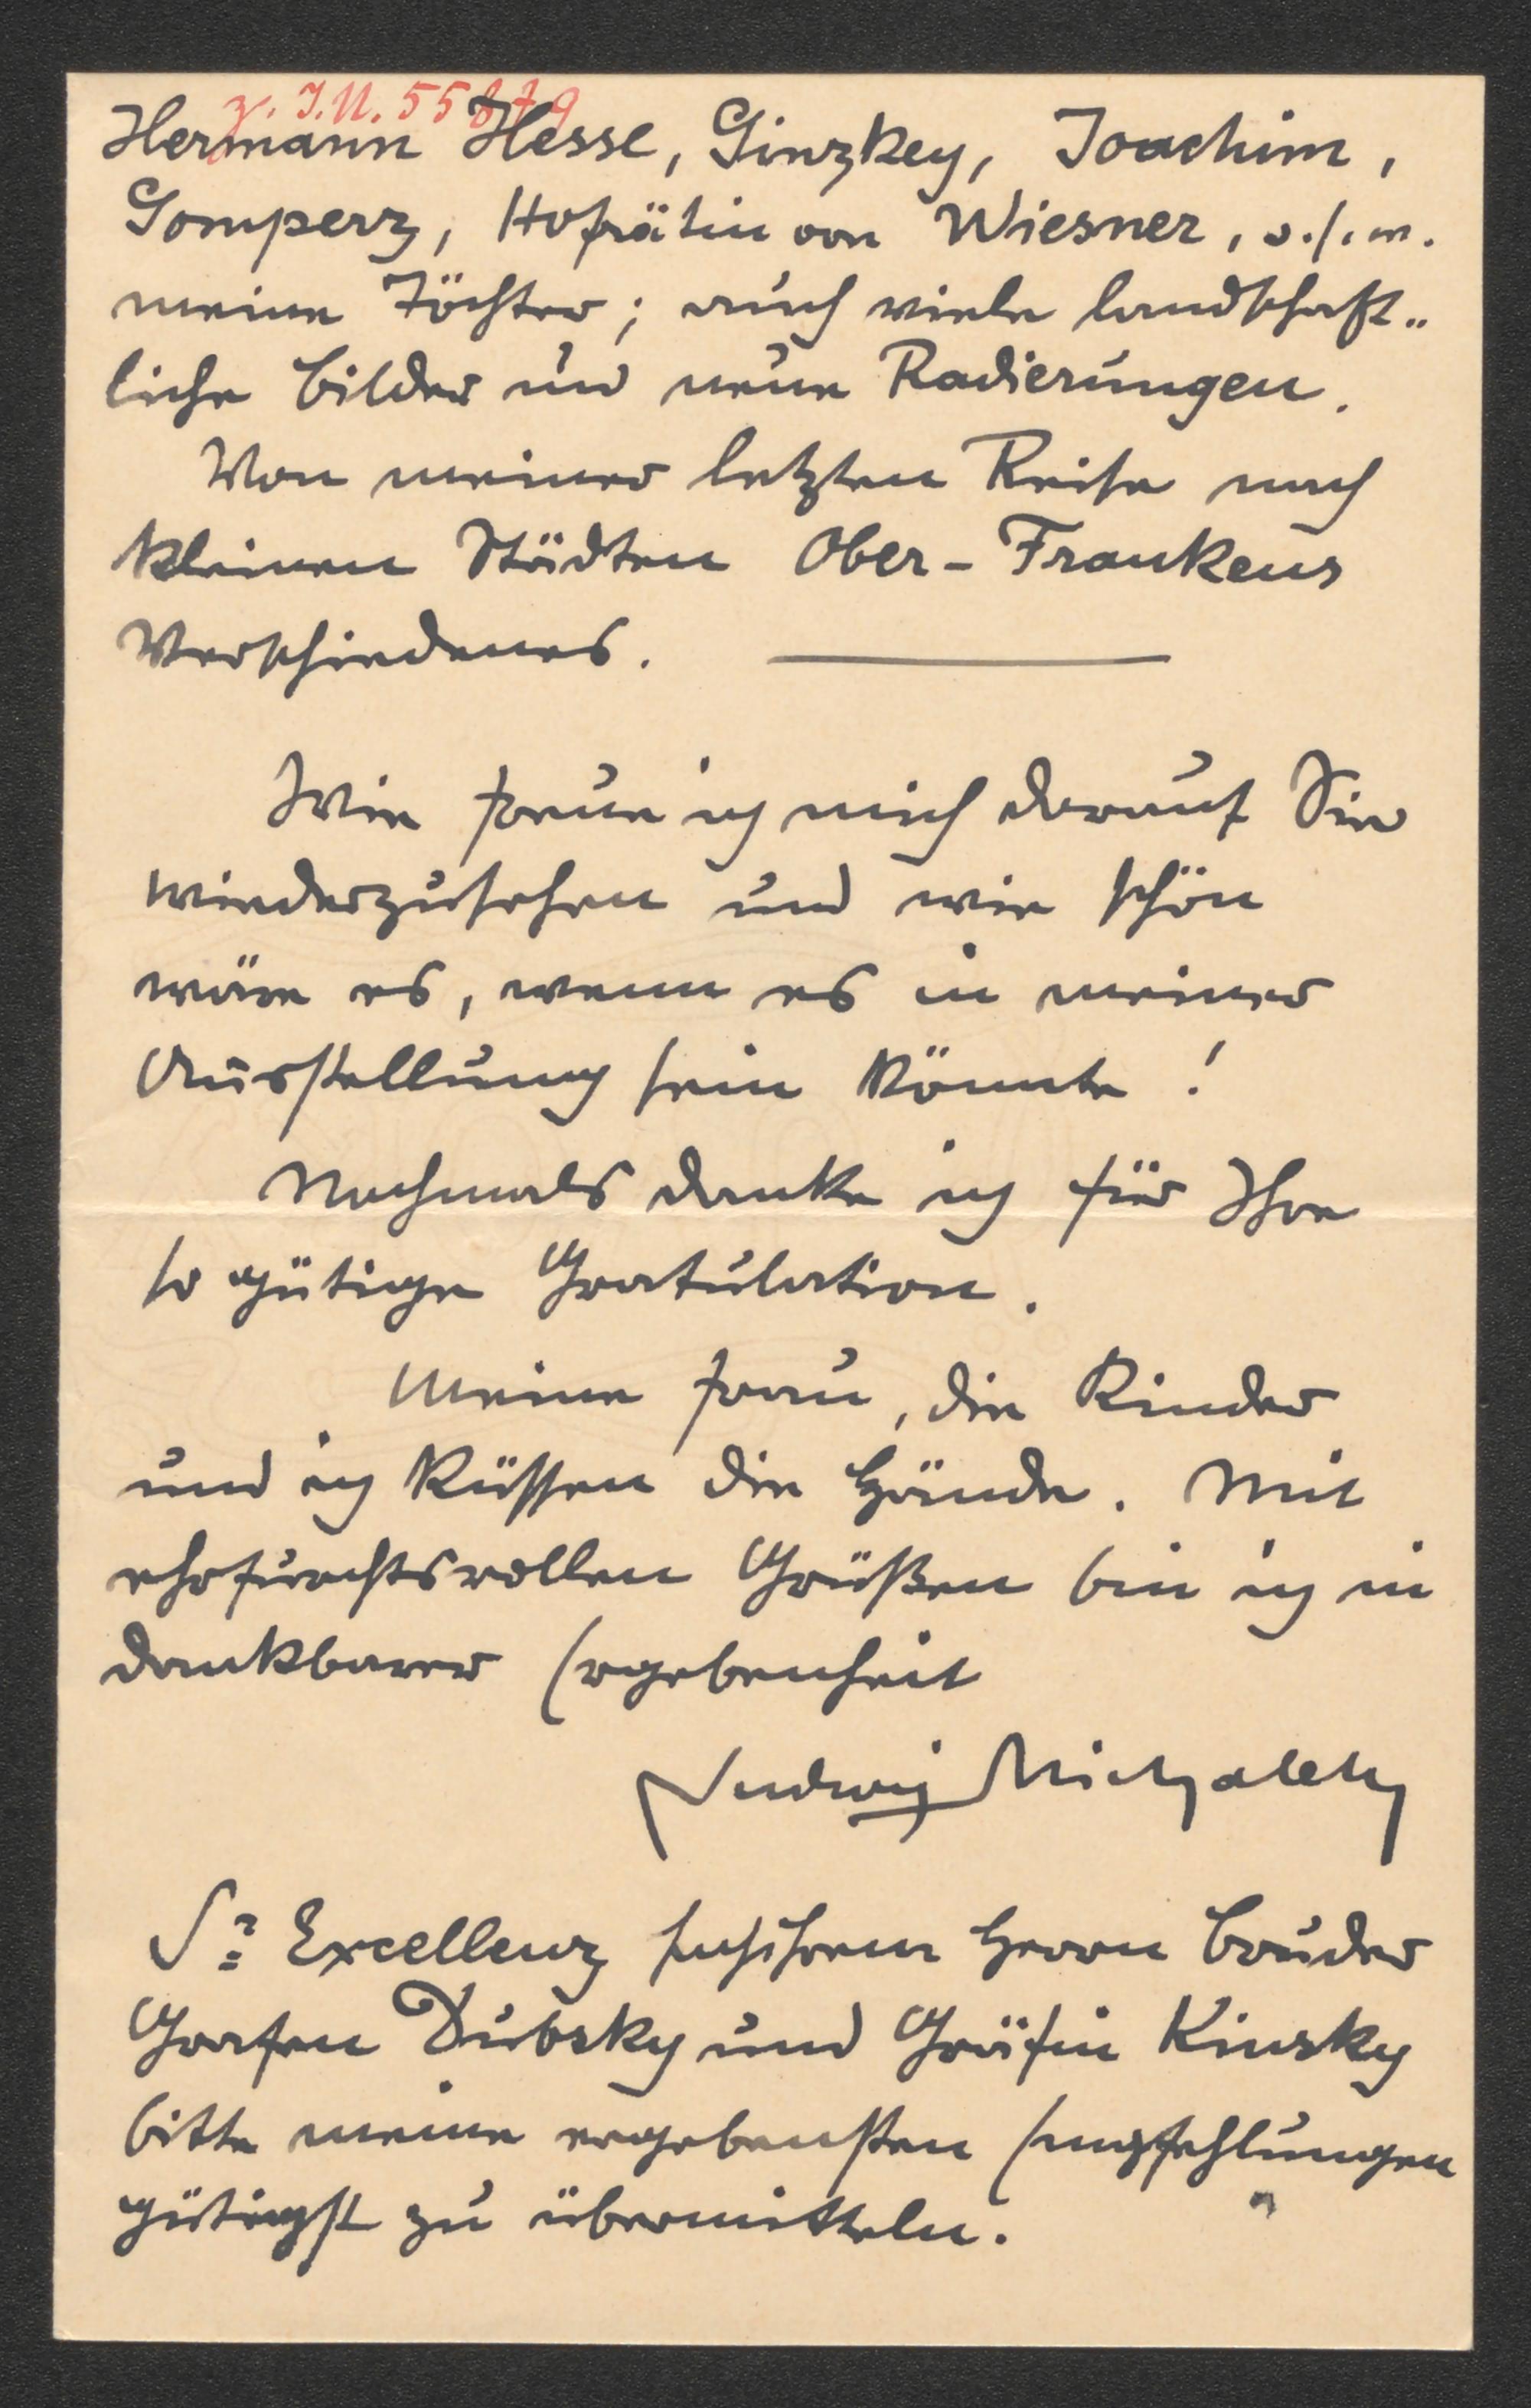 z. I.N. 55879
Hermann Hesse, Ginzkey, Joachim,
Gomperz, Hofrätin von Wiesner, u.s.w.
meine Töchter; auch viele landschaft„
liche Bilder und neue Radierungen.
Von meiner letzten Reise nach
kleinen Städten Ober-Frankens
Verschiedenes.
Wie freue ich mich darauf Sie
wiederzusehen und wie schön
wäre es, wenn es in meiner
Ausstellung sein könnte!
Nochmals danke ich für Ihre
so gütige Gratulation.
Meine Frau, die Kinder
und ich küssen die Hände. Mit
ehrfurchtsvollen Grüßen bin ich in
dankbarer Ergebenheit
Ludwig Michalek
Sr Excellenz Herrn Bruder
Grafen Dubsky und Gräfin Kinsky
bitte meine ergebensten Empfehlungen
gütigst zu übermitteln.